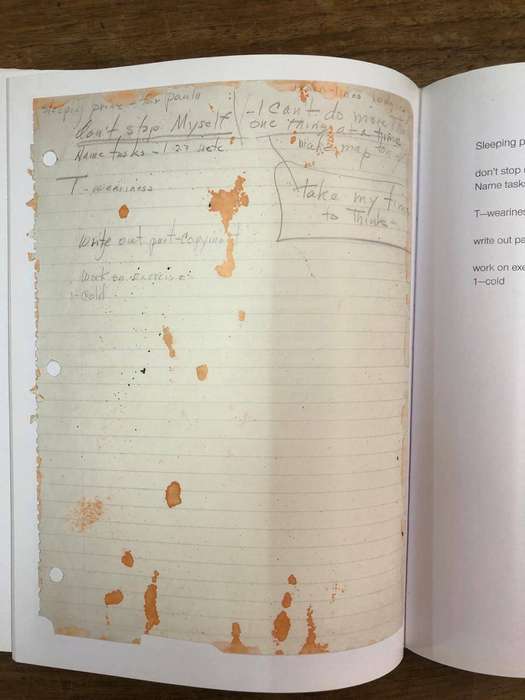 Sleeping prince – for paula
don't stop Myself
Name tasks – 1 27 etc
T – weariness
write out part – copying
work on exercises
1 – cold
lines body
– I can't do more than
one thing at a time
make map
take my time
to think –
Sleeping p
don't stop
Name tasks
T—wearines
write out pa
work on exe
1—cold